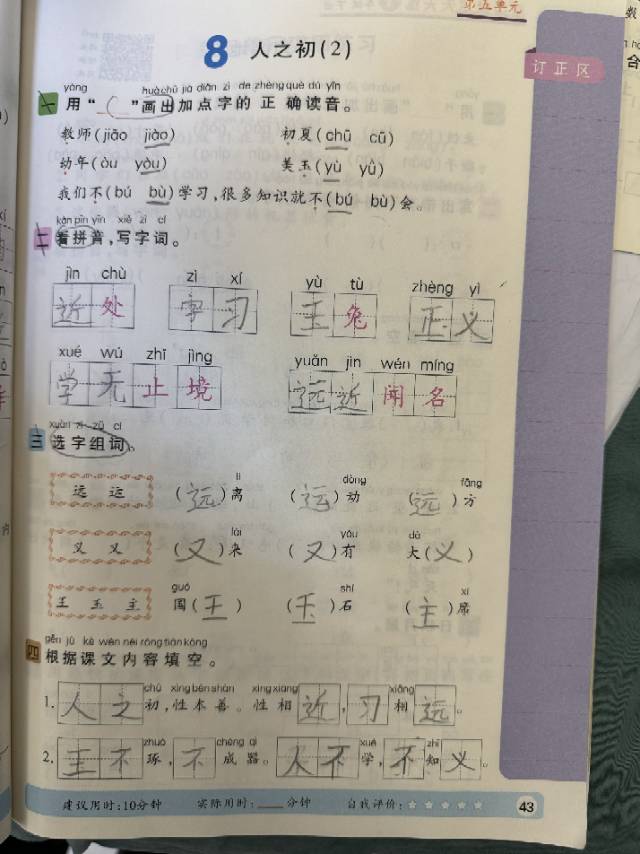 第五单元
8 人之初(2)
订正区
yòng huà chū jiā diǎn zì de zhèng què dú yīn
一 用“__”画出加点字的正确读音。
教师(jiāo jiào) 初夏(chū cū)
幼年(òu yòu) 美玉(yù yǜ)
我们不(bú bù)学习,很多知识就不(bú bù)会。
kàn pīn yīn xiě zì cí
二 看拼音,写字词。
jìn chù zì xí yù tù zhèng yì
近处 字习 玉兔 正义
xué wú zhǐ jìng yuǎn jìn wén míng
学无止境 远近闻名
xuǎn zì zǔ cí
三 选字组词。
lí dòng fāng
远 运 (远)离 (运)动 (远)方
lái yǒu dà
又 义 (又)来 (又)有 大(义)
guó shí xí
王 玉 主 国(王) (玉)石 (主)席
gēn jù kè wén nèi róng tián kòng
四 根据课文内容填空。
chū xìng běn shàn xìng xiāng xiāng
1. 人之初,性本善。性相近,习相远。
zhuó chéng qì xué zhī
2. 玉不琢,不成器。人不学,不知义。
建议用时:10分钟 实际用时:____分钟 自我评价:☆☆☆☆☆ 43